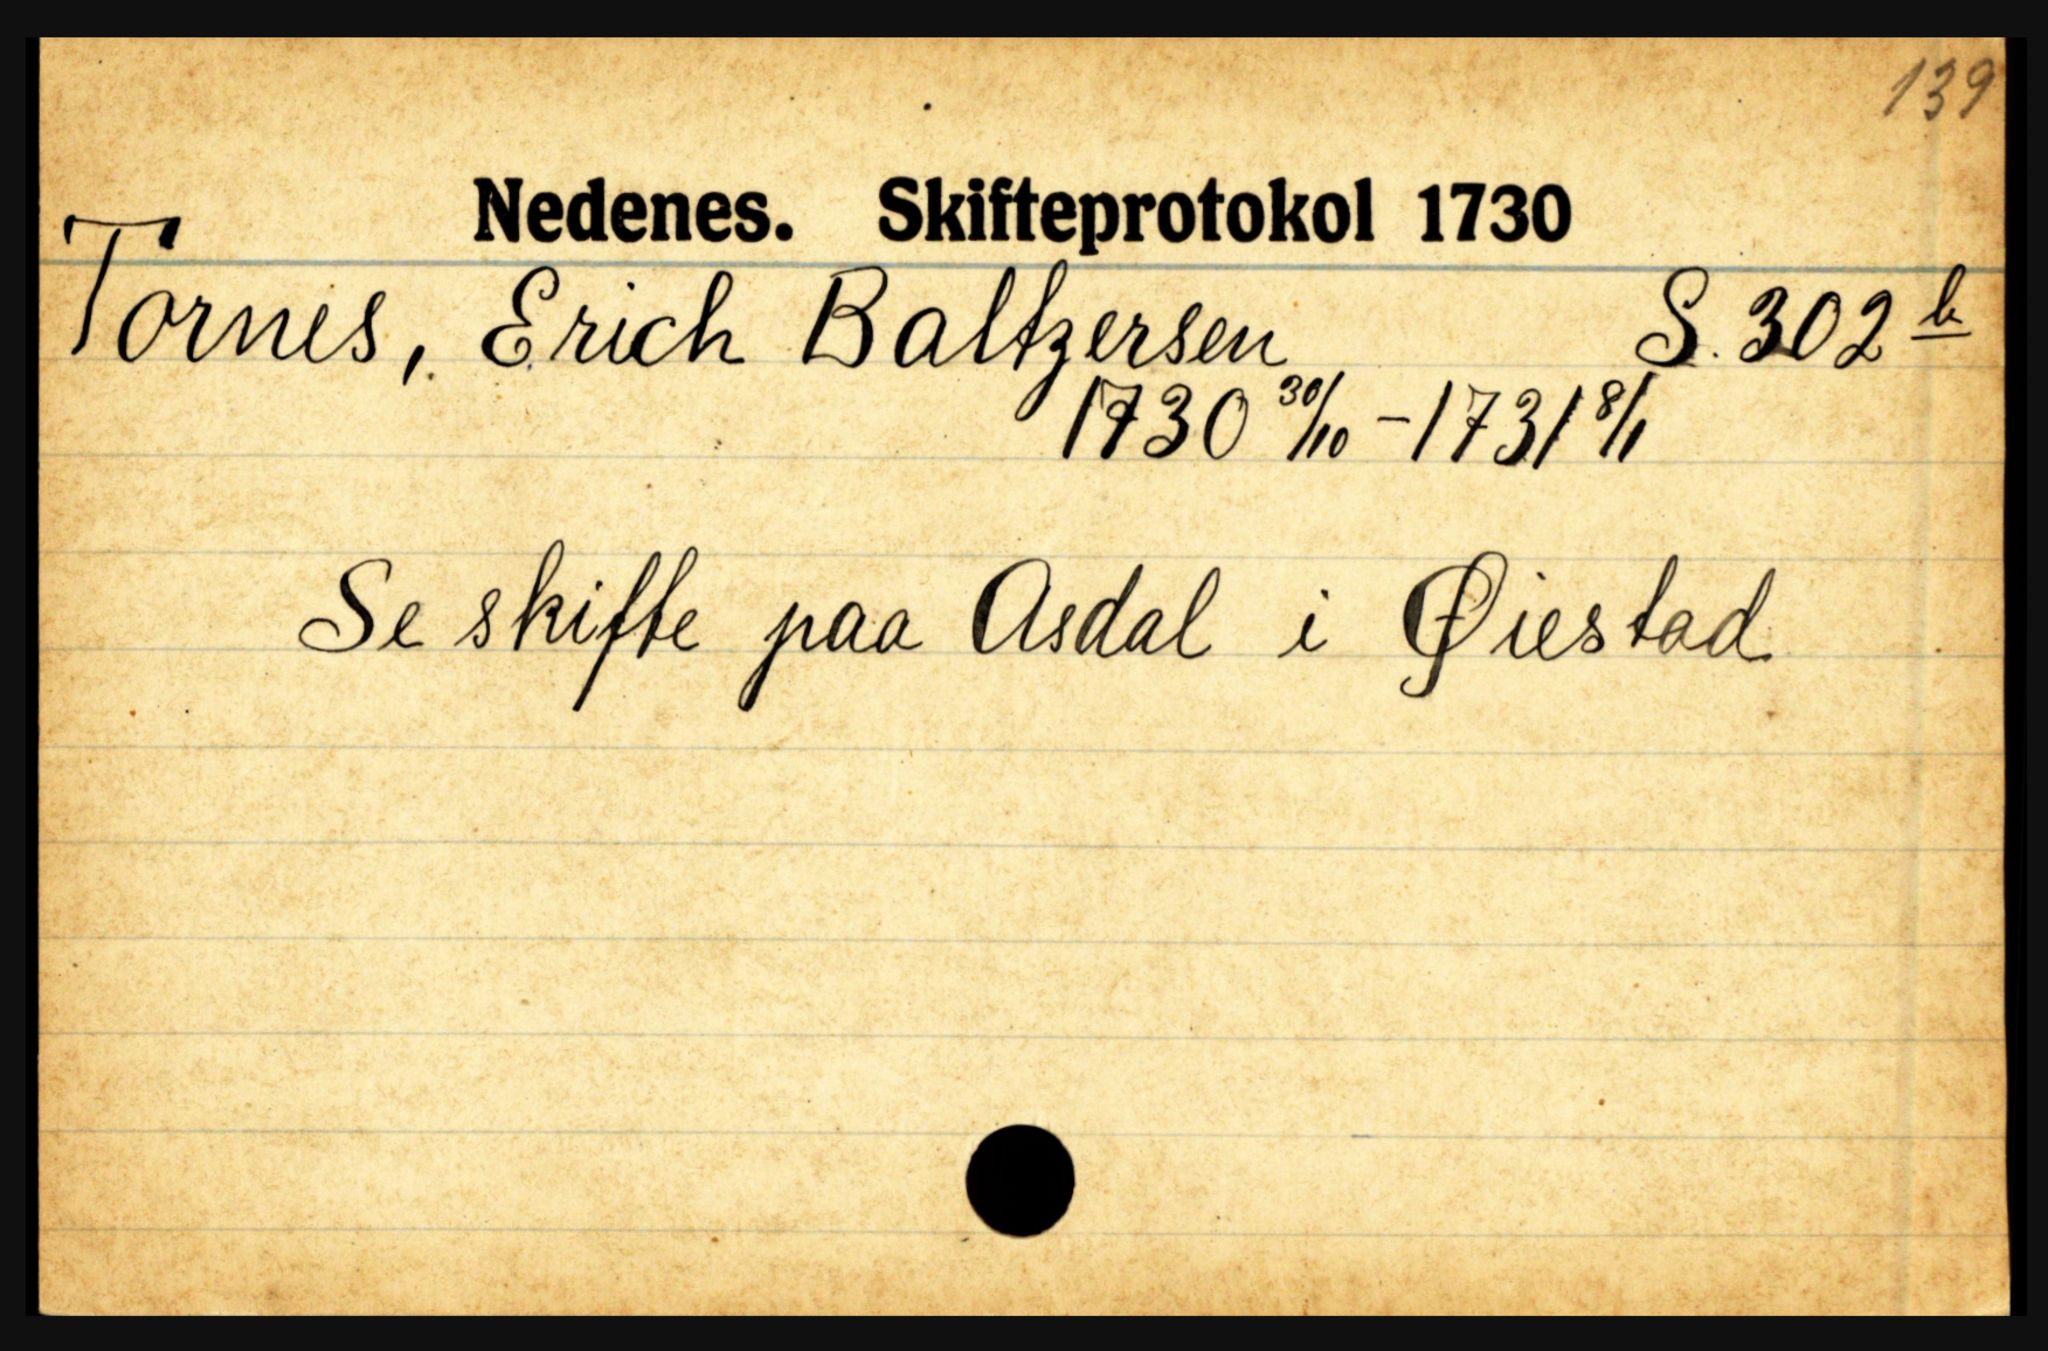 139
Nedenes. Skifteprotokol 1730
Tornes, Erich Baltzersen S. 302 b
1730 30/10 - 1731 8/1
Se skifte paa Asdal i Øiestad